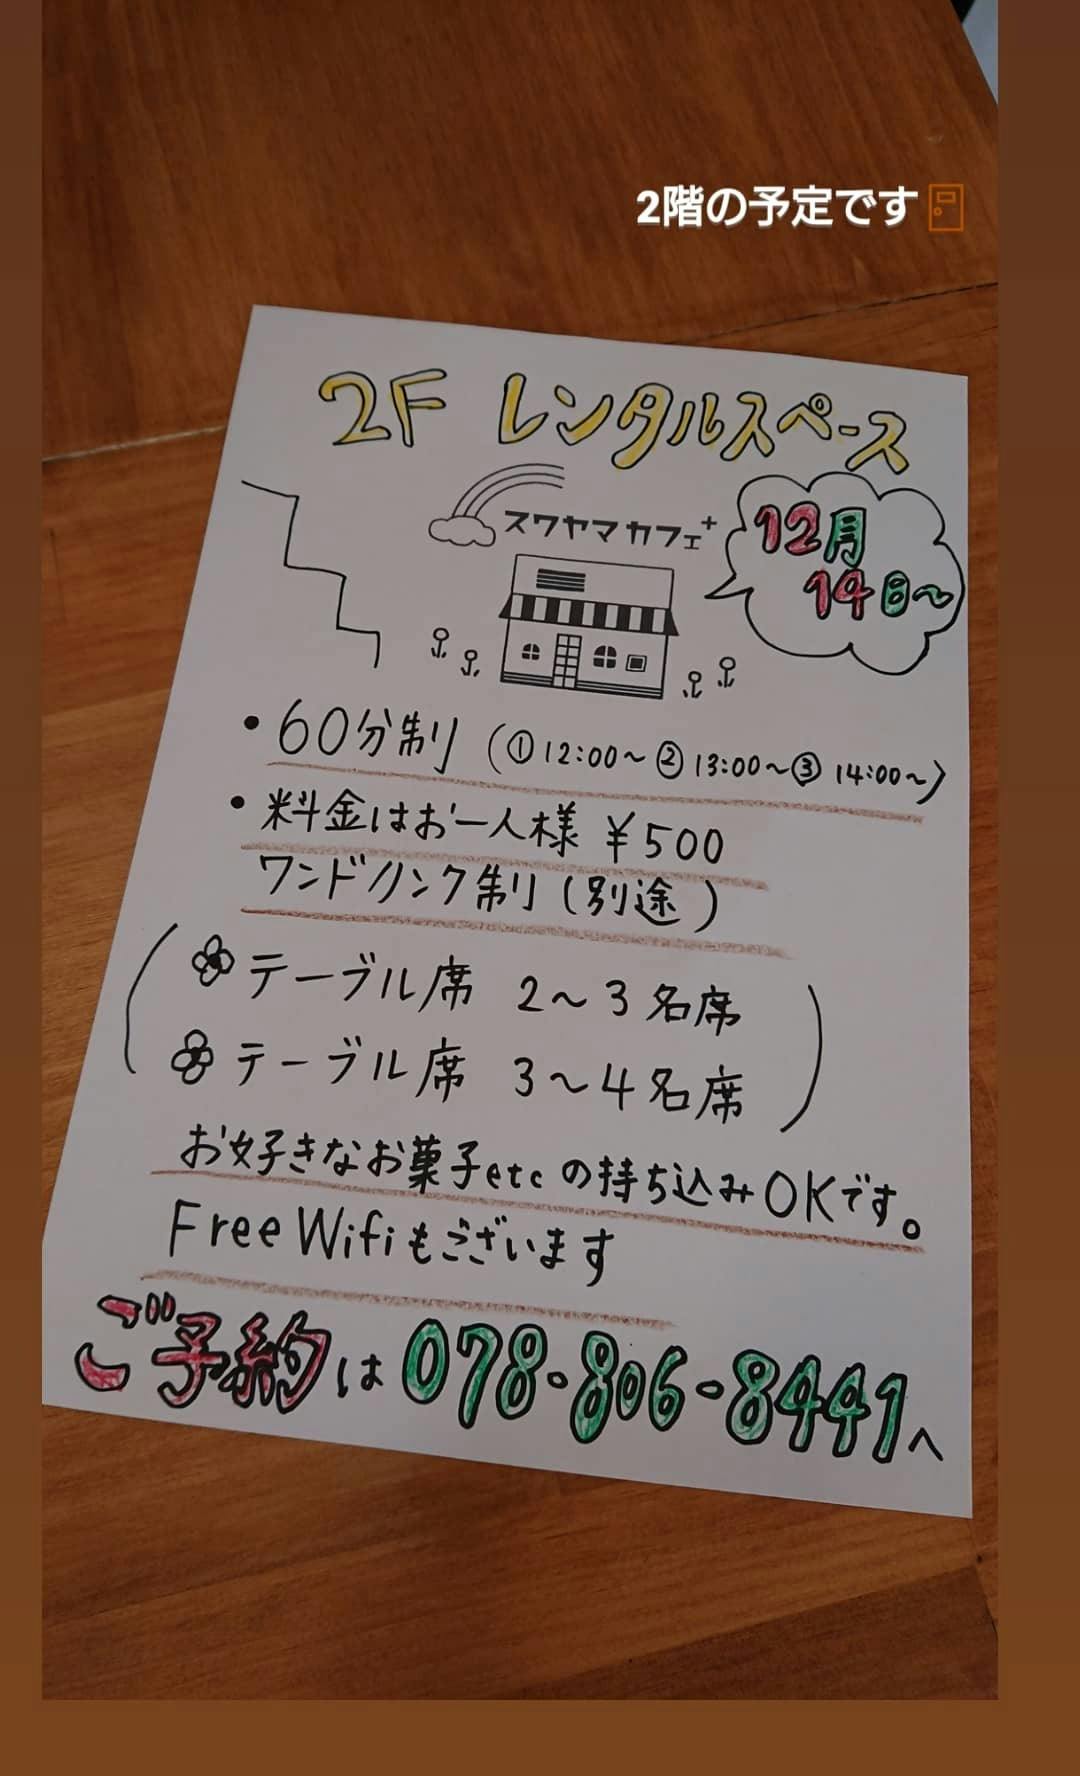 2階の予定です
2F レンタルスペース
スワヤマカフェ+
12月
14日～
・60分制 (① 12:00～ ② 13:00～ ③ 14:00～)
・料金はお一人様 ¥500
ワンドリンク制 (別途)
テーブル席 2～3名席
テーブル席 3～4名席
お好きなお菓子etcの持ち込みOKです。
Free Wifiもございます
ご予約は 078-806-8441へ